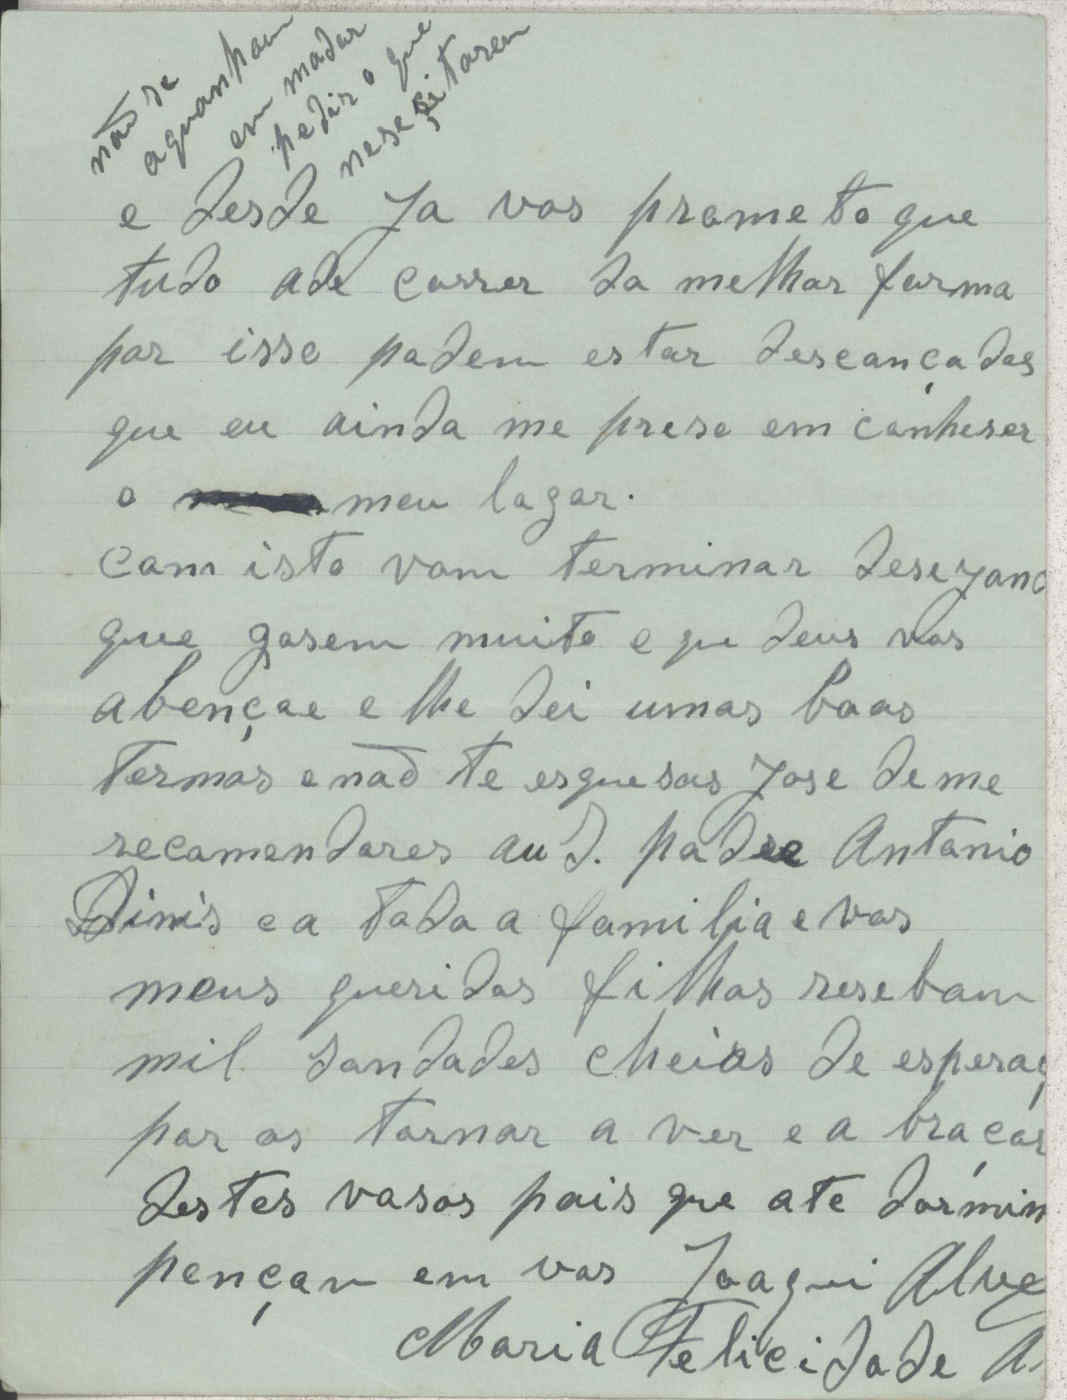 não se
aquanham
em madar
pedir o que
nesesitarem
e desde ja vos prometo que
tudo ade correr da melhor forma
por isso podem estar descançados
que eu ainda me preso em conheser
o meu lugar.
com isto vom terminar deseyand
que gosem muito e qu deus vos
abençoe e lhe dei umas boas
termas e não te esquesas Jose de me
recomendares au S. padre Antonio
Dinis e a toda a familia e vos
meus queridos filhos resebam
mil saudades cheias de esperaç
por os tornar a ver e a braçar
destes vosos pais que ate dormin
pençam em vos Joaqui Alve
Maria Felicidade A.